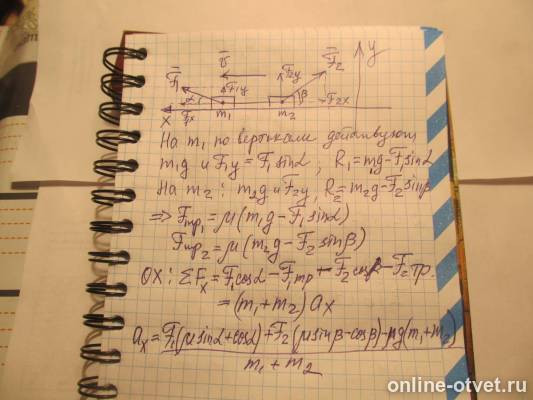 F̅₁ v̅ F₂y F̅₂ y
α F₁y β F₂x
x F₁x m₁ m₂
На m₁ по вертикали действуют
m₁g и F₁y = F₁sinα; R₁ = m₁g - F₁sinα
На m₂: m₂g и F₂y, R₂ = m₂g - F₂sinβ
=> Fтр₁ = μ(m₁g - F₁sinα)
Fтр₂ = μ(m₂g - F₂sinβ)
OX: ΣFx = F₁cosα - F₁тр - F₂cosβ - F₂тр.
= (m₁+m₂)ax
ax = F₁(μsinα+cosα)+F₂(μsinβ-cosβ)-μg(m₁+m₂)
m₁+m₂
online-otvet.ru